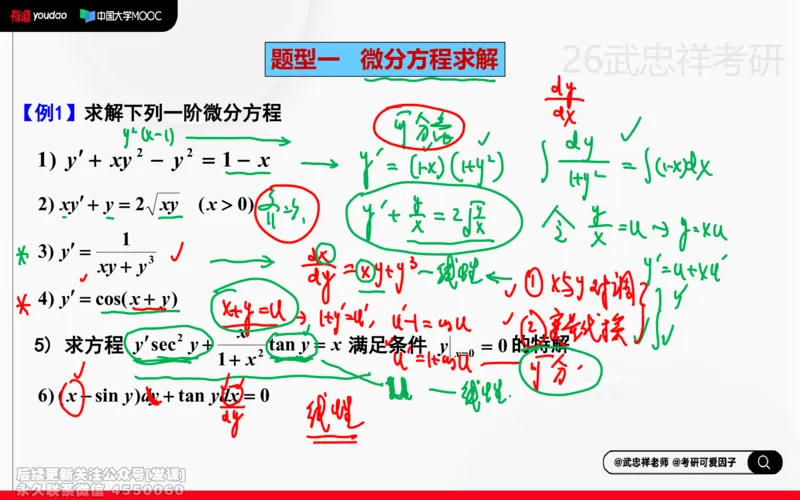 有道 youdao 中国大学MOOC
题型一 微分方程求解
26武忠祥考研
dy/dx
【例1】求解下列一阶微分方程
y²(x-1)
可分离
1) y′ + xy² − y² = 1 − x
y′ = (1-x)(1+y²)
∫ dy/(1+y²) = ∫(1-x)dx
2) xy′ + y = 2√xy (x > 0)
y′ + y/x = 2√(y/x)
令 y/x = u → y = xu
y′ = u + xu′
3) y′ = 1/(xy + y³)
dx/dy = xy + y³ — 线性
① x与y对调
4) y′ = cos(x + y)
x+y=u → 1+y′=u′, u′-1=cosu
② 变量代换
u′=1+cosu
可分
5) 求方程 y′sec² y + x/(1 + x²) tan y = x 满足条件 y|x=0 = 0 的特解
u — 线性
6) (x − sin y)dy + tan ydx = 0
dy
线性
@武忠祥老师 @考研可爱因子
后续更新关注公众号[发课]
永久联系微信 4550060